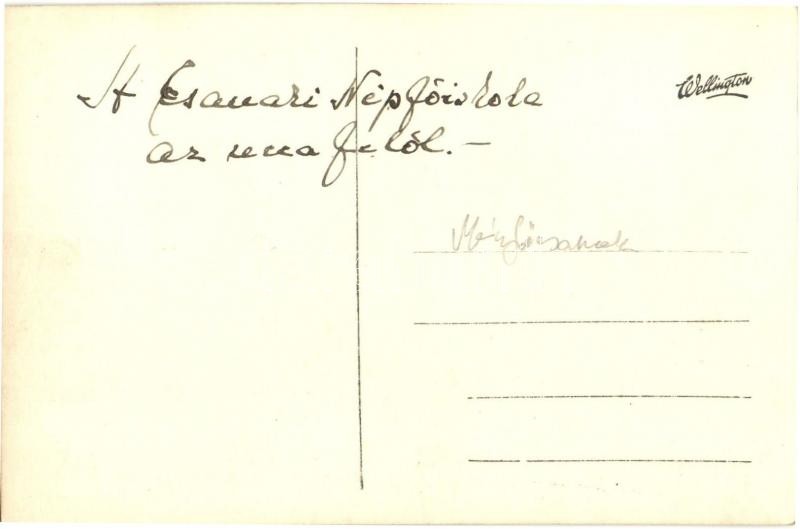 A Csanaki Népfőiskola
az utca felől.–
Wellington
Ménfőcsanak